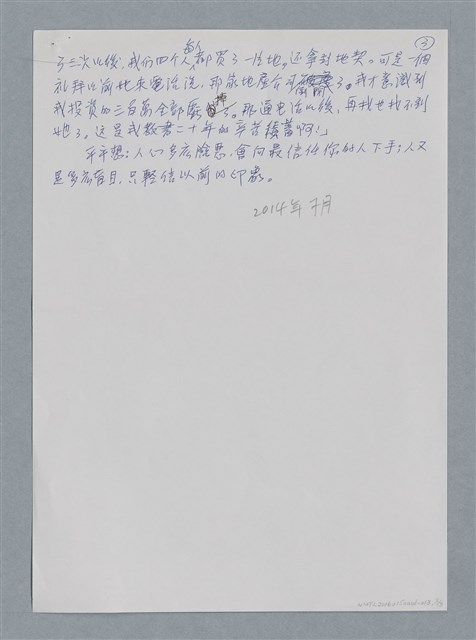 ③
了三次以後，我們四个人每人都買了一塊地，还拿到地契。可是一個
礼拜以前她來電话说，那家地產公司倒闭了。我才意識到
我投資的三百萬全部虧掉了。那通电话以後，再我也找不到
她了。这是我数者二十年的辛苦積蓄啊！」
平平想：人心多広險惡，會向最信任你的人下手；人又
是多広盲目，只輕信以前的印象。
2014年7月